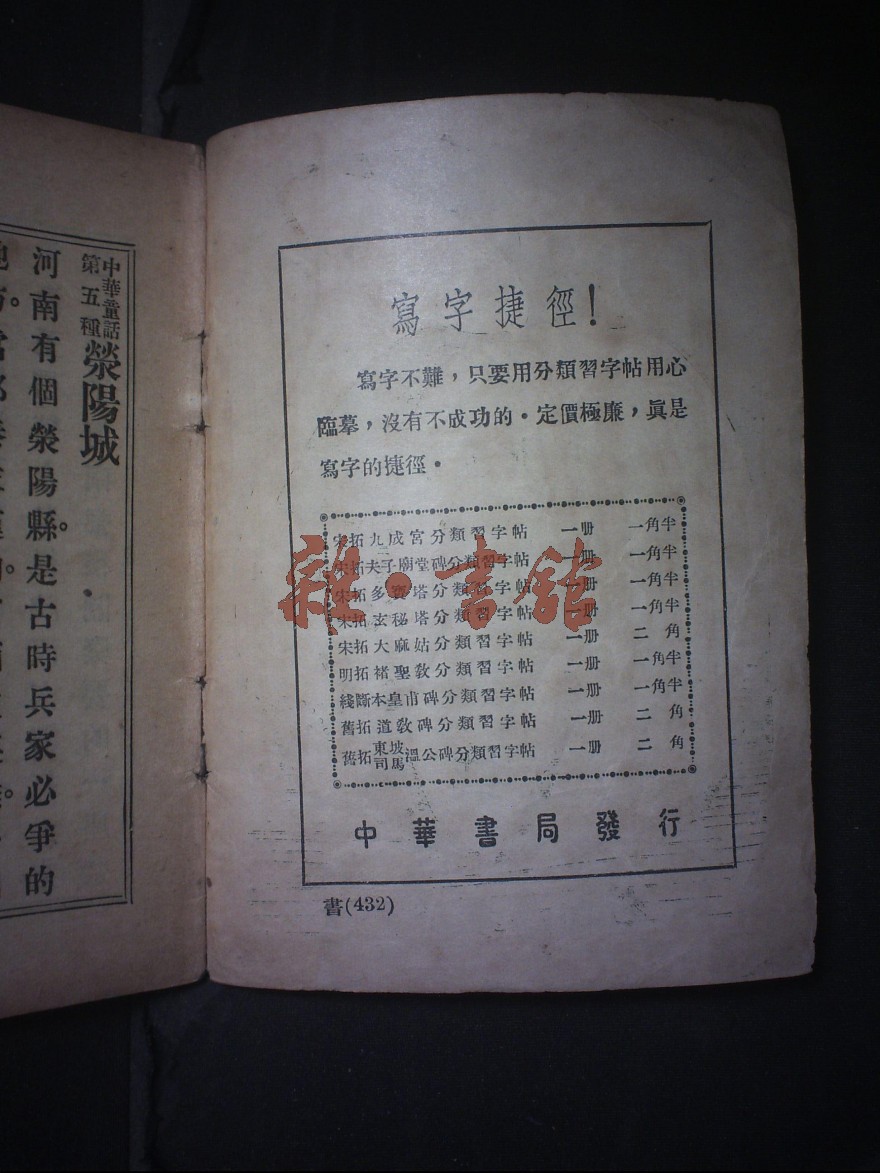 中華童話
第五種
滎陽城
河南有個滎陽縣。是古時兵家必爭的
寫字捷徑！
寫字不難，只要用分類習字帖用心
臨摹，沒有不成功的．定價極廉，眞是
寫字的捷徑．
宋拓九成宮分類習字帖 一册 一角半
宋拓夫子廟堂碑分類習字帖 一册 一角半
宋拓多寶塔分類習字帖 一册 一角半
宋拓玄秘塔分類習字帖 一册 一角半
宋拓大麻姑分類習字帖 一册 二角
明拓褚聖敎分類習字帖 一册 一角半
綫斷本皇甫碑分類習字帖 一册 一角半
舊拓道敎碑分類習字帖 一册 二角
舊拓東坡司馬溫公碑分類習字帖 一册 二角
中華書局發行
書(432)
雜·書館